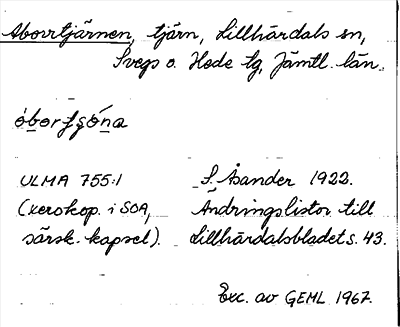 Aborrtjärnen, tjärn, Lillhärdals sn,
Svegs o. Hede tg, Jämtl. län.
åborʃʂó̱na
ULMA 755:1 S. Åsander 1922.
(xerokop. i SOA, Ändringslistor till
särsk. kapsel). Lillhärdalsbladet s. 43.
Exc. av GEML 1967.